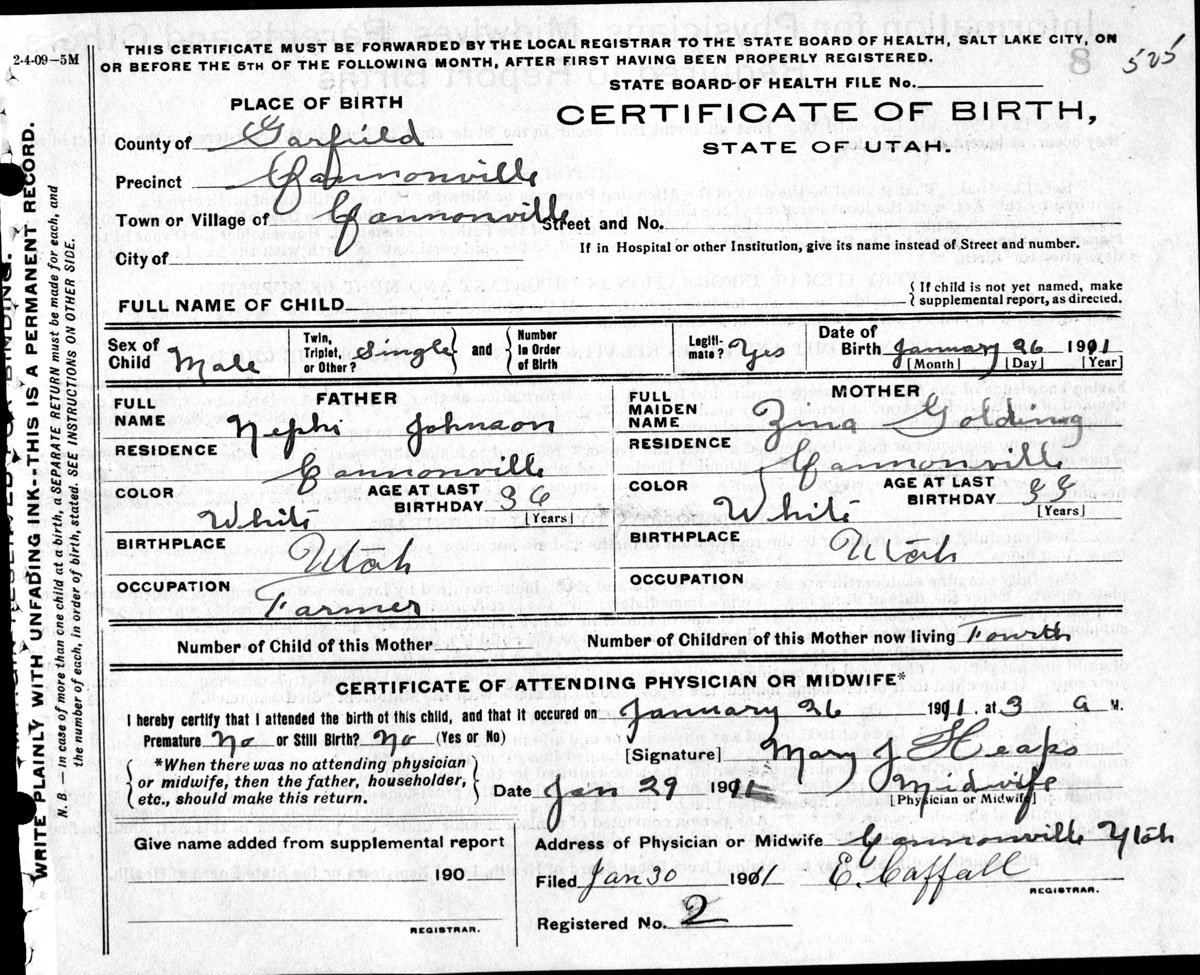 THIS CERTIFICATE MUST BE FORWARDED BY THE LOCAL REGISTRAR TO THE STATE BOARD OF HEALTH, SALT LAKE CITY, ON
OR BEFORE THE 5TH OF THE FOLLOWING MONTH, AFTER FIRST HAVING BEEN PROPERLY REGISTERED.
2-4-09—5M
525
STATE BOARD OF HEALTH FILE No.
CERTIFICATE OF BIRTH,
STATE OF UTAH.
PLACE OF BIRTH
County of Garfield
Precinct Cannonville
Town or Village of Cannonville Street and No.
If in Hospital or other Institution, give its name instead of Street and number.
City of
FULL NAME OF CHILD
{ If child is not yet named, make
supplemental report, as directed.
Sex of Child Male
Twin, Triplet, or Other? Single } and { Number in Order of Birth
Legitimate? Yes
Date of Birth January 26 1911
[Month] [Day] [Year]
FATHER
FULL NAME Nephi Johnson
RESIDENCE Cannonville
COLOR White
AGE AT LAST BIRTHDAY 36
[Years]
BIRTHPLACE Utah
OCCUPATION Farmer
MOTHER
FULL MAIDEN NAME Zina Golding
RESIDENCE Cannonville
COLOR White
AGE AT LAST BIRTHDAY 33
[Years]
BIRTHPLACE Utah
OCCUPATION
Number of Child of this Mother
Number of Children of this Mother now living Fourth
CERTIFICATE OF ATTENDING PHYSICIAN OR MIDWIFE*
I hereby certify that I attended the birth of this child, and that it occured on January 26 1911. at 3 a M.
Premature No or Still Birth? No (Yes or No)
*When there was no attending physician
or midwife, then the father, householder,
etc., should make this return.
[Signature] Mary J Heaps
Date Jan 29 1911 Midwife
[Physician or Midwife]
Give name added from supplemental report
190
REGISTRAR.
Address of Physician or Midwife Cannonville Utah
Filed Jan 30 1911 E. Caffall
REGISTRAR.
Registered No. 2
WRITE PLAINLY WITH UNFADING INK--THIS IS A PERMANENT RECORD.
N. B. — in case of more than one child at a birth, a SEPARATE RETURN must be made for each, and
the number of each, in order of birth, stated. SEE INSTRUCTIONS ON OTHER SIDE.